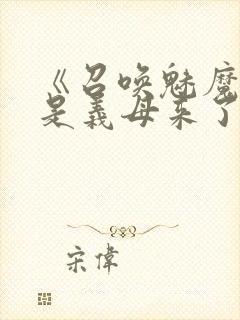 《召唤魅魔
是義母来了
宋偉